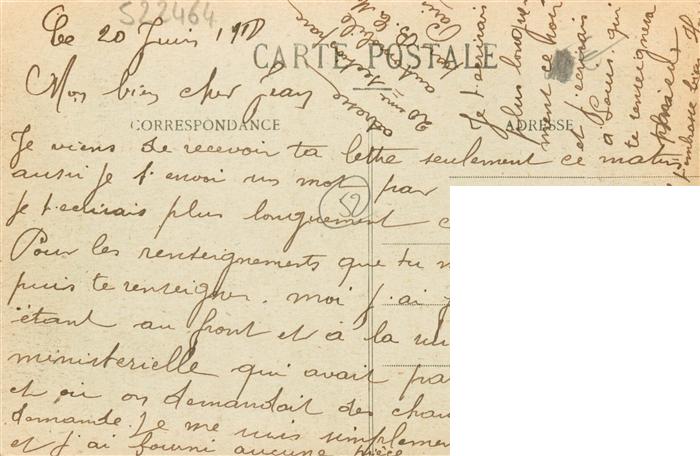 522464
Le 20 Juin 19
CARTE POSTALE
Mon bien cher Jean
CORRESPONDANCE
ADRESSE
Je viens de recevoir ta lettre seulement ce matin
aussi je t'envoi un mot par
52
je t'ecrirais plus longuement
Pour les renseignements que tu
puis te renseigner. moi j'ai
étant au front et à la
ministerielle qui avait
et où on demandait des
demande. Je me suis
et j'ai fourni aucune pièce
adresse
Je t'ecrirais
plus longue
ment ce soir
et j'ecrirais
à Louis qui
te renseignera